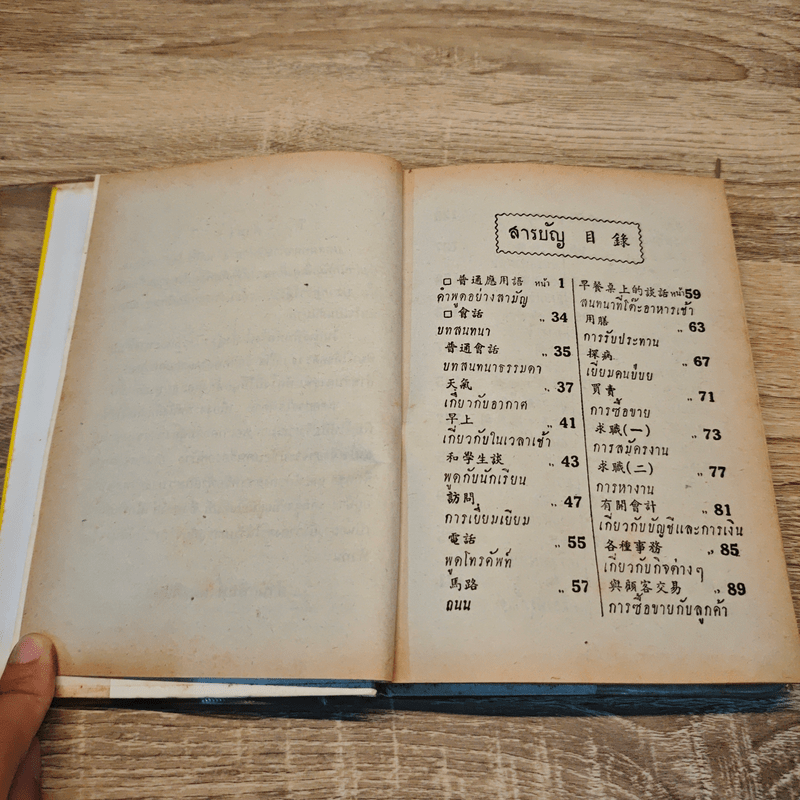 สารบัญ 目錄
□ 普通應用語 หน้า 1
คำพูดอย่างสามัญ
□ 會話 ,, 34
บทสนทนา
普通會話 ,, 35
บทสนทนาธรรมดา
天氣 ,, 37
เกี่ยวกับอากาศ
早上 ,, 41
เกี่ยวกับในเวลาเช้า
和學生談 ,, 43
พูดกับนักเรียน
訪問 ,, 47
การเยี่ยมเยียม
電話 ,, 55
พูดโทรศัพท์
馬路 ,, 57
ถนน
早餐桌上的談話 หน้า 59
สนทนาที่โต๊ะอาหารเช้า
用膳 ,, 63
การรับประทาน
探病 ,, 67
เยี่ยมคนป่วย
買賣 ,, 71
การซื้อขาย
求職(一) ,, 73
การสมัครงาน
求職(二) ,, 77
การหางาน
有關會計 ,, 81
เกี่ยวกับบัญชีและการเงิน
各種事務 ,, 85
เกี่ยวกับกิจต่างๆ
與顧客交易 ,, 89
การซื้อขายกับลูกค้า